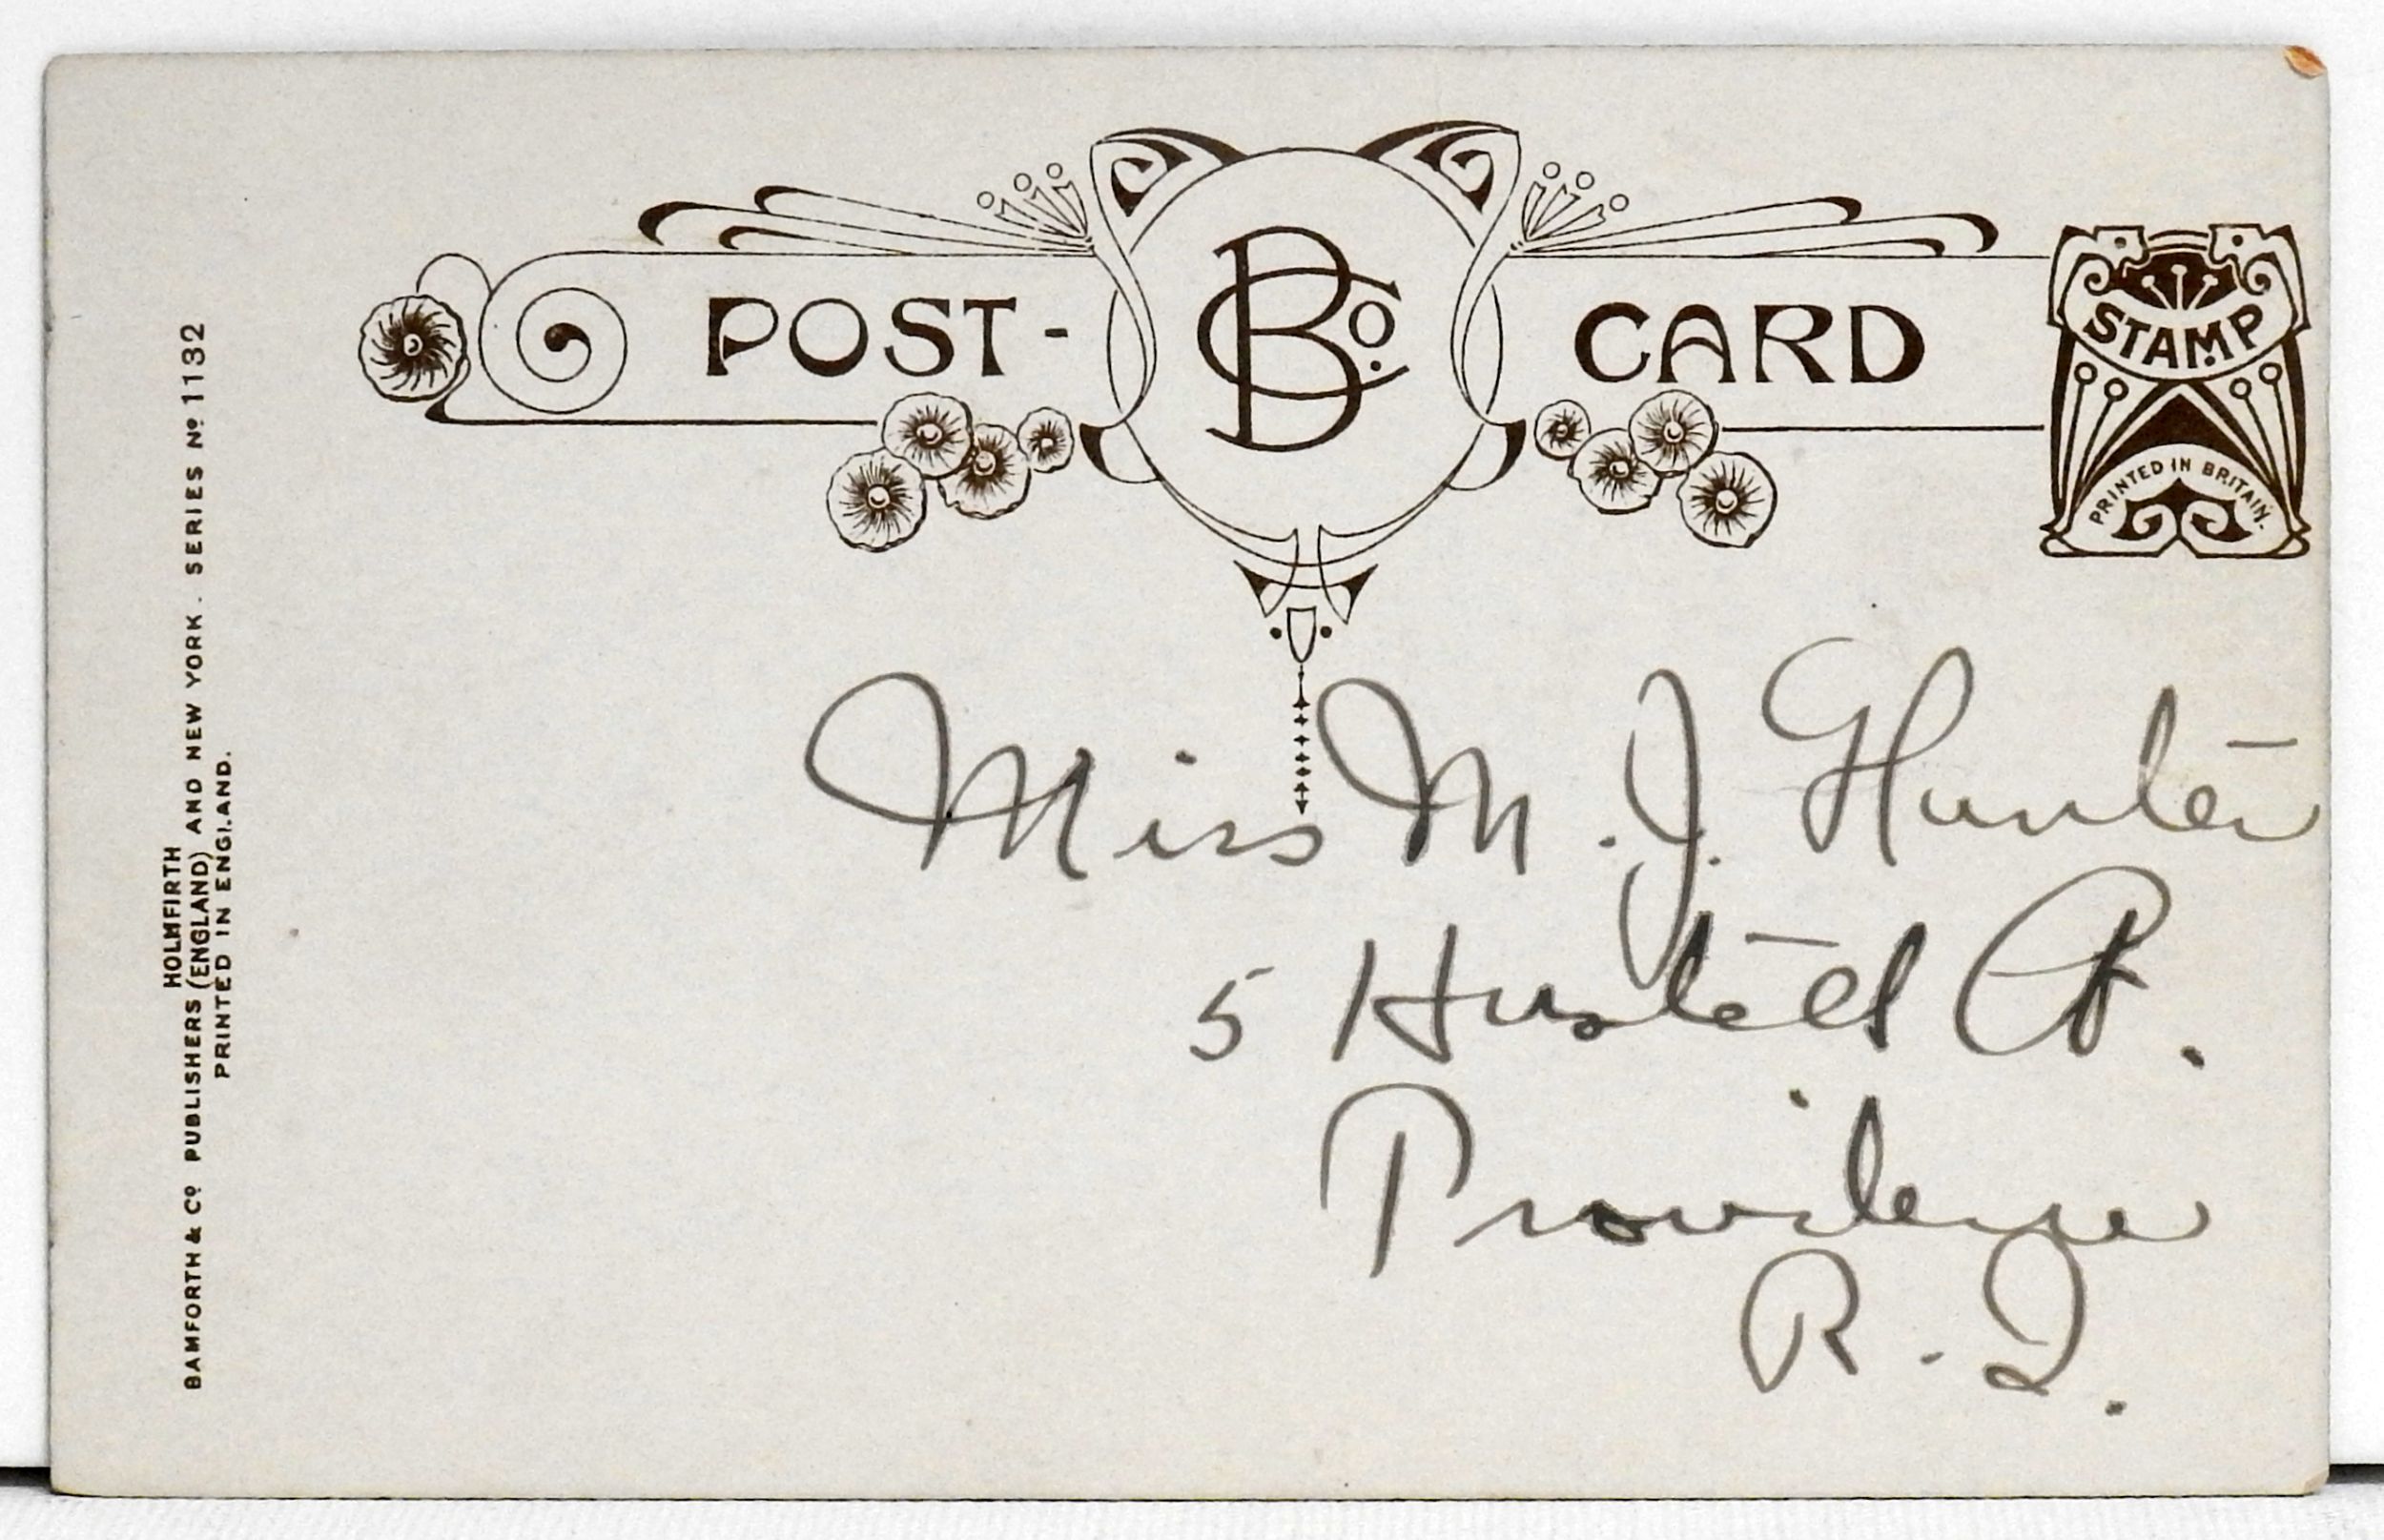 POST-CARD
BCo.
STAMP
PRINTED IN BRITAIN.
HOLMFIRTH
BAMFORTH & Co PUBLISHERS (ENGLAND) AND NEW YORK. SERIES No 1132
PRINTED IN ENGLAND.
Miss M. J. Hunter
5
Providence
R. I.